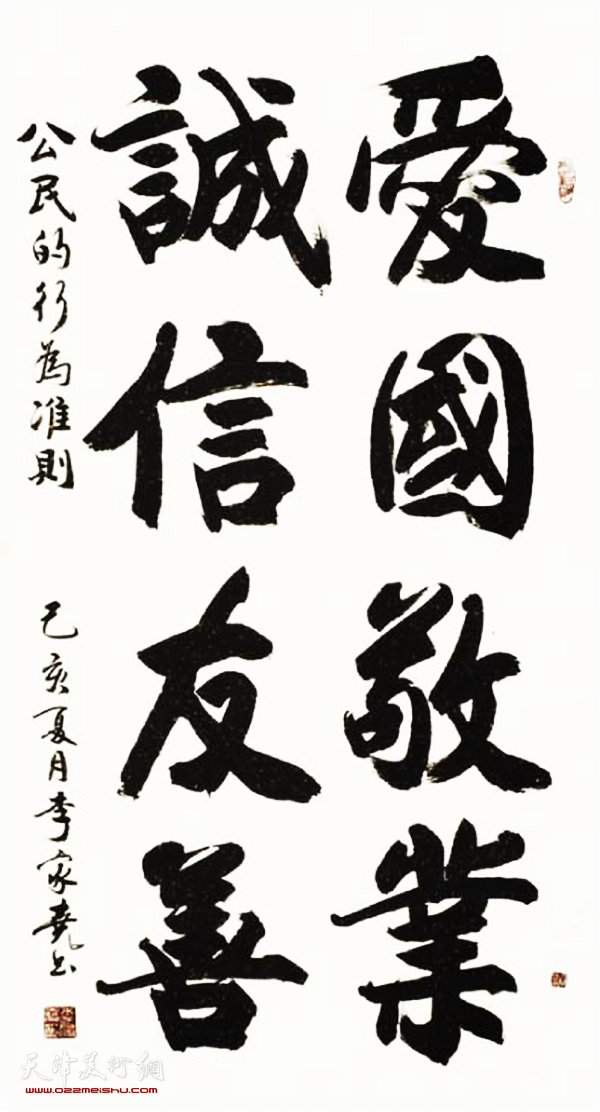 愛國敬業
誠信友善
公民的行為准則
己亥夏月李家堯书
天津美術網
www.022meishu.com